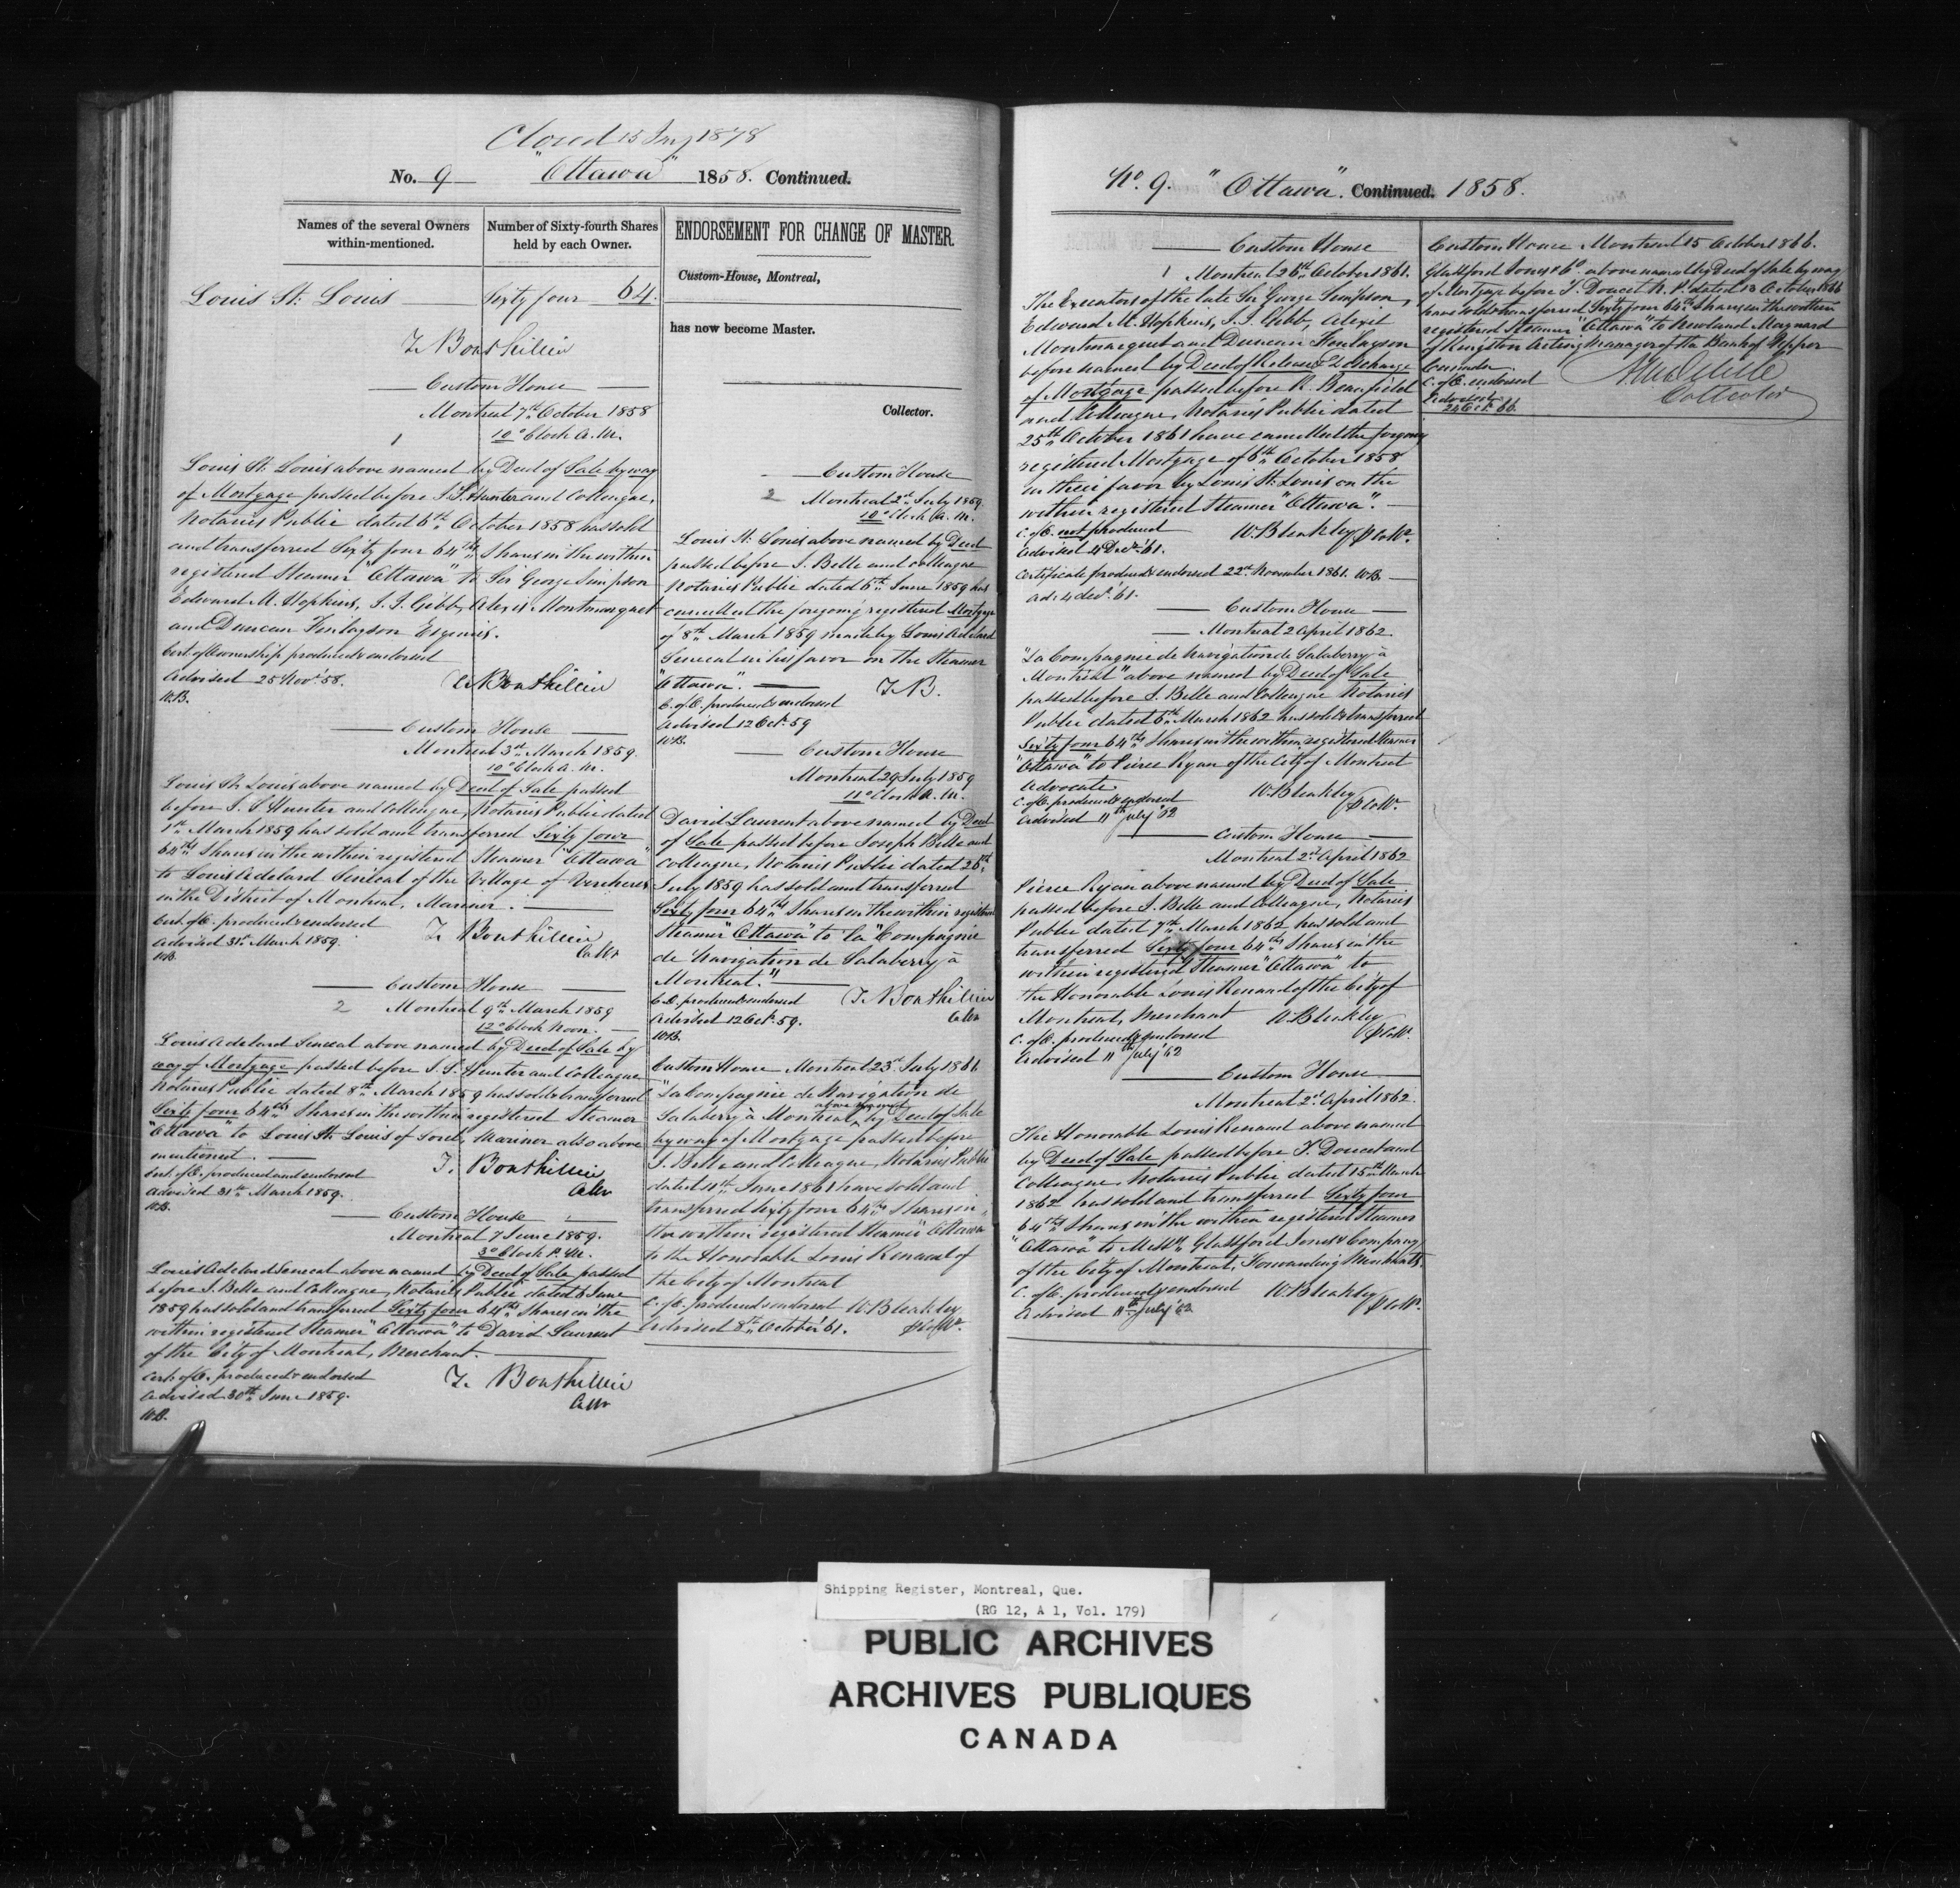 Closed 15 1878
No. 9 "Ottawa" 1858. Continued.
Names of the several Owners
within-mentioned.
Number of Sixty-fourth Shares
held by each Owner.
Louis St. Louis Sixty four 64.
T. Bouthillier
Custom House
Montreal 7th October 1858
10 o'Clock A.M.
1
Louis St. Louis above named by Deed of Sale by way
of Mortgage passed before J. S. Hunter and Colleague,
Notaries Public dated 6th October 1858 has sold
and transferred Sixty four 64ths Shares in the within
registered Steamer "Ottawa" to Sir George Simpson
Edward M. Hopkins, J. J. Gibb, Alexis Montmarquet
and Duncan Finlayson Esquires.
Cert. of Ownership produced & endorsed
Advised 25 Novr. 58. T. Bouthillier
W.B.
Custom House
Montreal 3rd March 1859.
10 o'Clock A.M.
Louis St. Louis above named by Deed of Sale passed
before J. S. Hunter and Colleague, Notaries Public dated
1st March 1859 has sold and transferred Sixty four
64ths Shares in the within registered Steamer "Ottawa"
to Louis Adelard Senécal of the Village of Vercheres
in the District of Montreal, Mariner.
Cert. of O. produced & endorsed
Advised 31st March 1859. T. Bouthillier
W.B. Collr
Custom House
2 Montreal 9th March 1859
12 o'Clock Noon.
Louis Adelard Senecal above named by Deed of Sale by
way of Mortgage passed before J. S. Hunter and Colleague
Notaries Public dated 8th March 1859 has sold & transferred
Sixty four 64ths Shares in the within registered Steamer
"Ottawa" to Louis St. Louis of Sorel, Mariner also above
mentioned.
Cert. of O. produced and endorsed T. Bouthillier
Advised 31st March 1859. Collr
W.B.
Custom House
Montreal 7 June 1859.
3 o'Clock P.M.
Louis Adelard Senecal above named by Deed of Sale passed
before J. Belle and Colleague, Notaries Public dated 6 June
1859 has sold and transferred Sixty four 64ths Shares in the
within registered Steamer "Ottawa" to David Laurent
of the City of Montreal, Merchant.
Cert. of O. produced & endorsed T. Bouthillier
Advised 30th June 1859. Collr
W.B.
ENDORSEMENT FOR CHANGE OF MASTER.
Custom-House, Montreal,
has now become Master.
Collector.
Custom House
2 Montreal 2nd July 1859.
10 o'Clock A.M.
Louis St. Louis above named by Deed
passed before J. Belle and colleague
Notaries Public dated 6th June 1859 has
cancelled the foregoing registered Mortgage
of 8th March 1859 made by Louis Adelard
Senecal in his favor on the Steamer
"Ottawa". T.B.
C. of O. produced & endorsed
Advised 12 Oct. 59
W.B.
Custom House
Montreal 29 July 1859
11 o'Clock A.M.
David Laurent above named by Deed
of Sale passed before Joseph Belle and
Colleague, Notaries Public dated 26th
July 1859 has sold and transferred
Sixty four 64ths Shares in the within registered
Steamer "Ottawa" to "La Compagnie
de Navigation de Salaberry à
Montreal."
C.O. produced & endorsed T. Bouthillier
Advised 12 Oct. 59. Collr
W.B.
Custom House Montreal 23rd July 1861
"La Compagnie de Navigation de
Salaberry à Montreal, above named by Deed of Sale
by way of Mortgage passed before
J. Belle and Colleague, Notaries Public
dated 11th June 1861 have sold and
transferred Sixty four 64ths Shares in
the within registered Steamer "Ottawa"
to the Honorable Louis Renaud of
the City of Montreal
C. of O. produced & endorsed W. Bleakley
Advised 8th October '61.
No. 9. "Ottawa". Continued. 1858.
Custom House
1 Montreal 26th October 1861.
The Executors of the late Sir George Simpson,
Edward M. Hopkins, J. J. Gibb, Alexis
Montmarquet and Duncan Finlayson
before named by Deed of Release & Discharge
of Mortgage passed before R. Beaufield
and Colleague, Notaries Public dated
25th October 1861 have cancelled the foregoing
registered Mortgage of 6th October 1858
in their favor by Louis St. Louis on the
within registered Steamer "Ottawa".
C. of O. not produced W. Bleakley
Advised 4 Decr. '61.
Certificate produced & endorsed 22nd November 1861. W.B.
ad. 4 Decr. '61.
Custom House
Montreal 2 April 1862.
"La Compagnie de Navigation de Salaberry à
Montréal" above named by Deed of Sale
passed before J. Belle and Colleague Notaries
Public dated 6th March 1862 has sold & transferred
Sixty four 64ths Shares in the within registered Steamer
"Ottawa" to Pierce Ryan of the City of Montreal
Advocate
C. of O. produced & endorsed W. Bleakley
Advised 11th July '62
Custom House
Montreal 2nd April 1862
Pierce Ryan above named by Deed of Sale
passed before J. Belle and Colleague, Notaries
Public dated 7th March 1862 has sold and
transferred Sixty four 64ths Shares in the
within registered Steamer "Ottawa" to
the Honorable Louis Renaud of the City of
Montreal, Merchant W. Bleakley
C. of O. produced & endorsed
Advised 11th July '62
Custom House
Montreal 2nd April 1862.
The Honorable Louis Renaud above named
by Deed of Sale passed before T. Doucet and
Colleague, Notaries Public dated 15th March
1862 has sold and transferred Sixty four
64ths Shares in the within registered Steamer
"Ottawa" to Messrs. Glassford Jones & Company
of the City of Montreal, Forwarding Merchants.
C. of O. produced & endorsed W. Bleakley
Advised 11th July '62
Custom House Montreal 15 October 1866.
Glassford Jones & Co. above named by Deed of Sale by way
of Mortgage before T. Doucet N.P. dated 13 October 1866
have sold & transferred Sixty four 64ths Shares in the within
registered Steamer "Ottawa" to Rowland Maynard
of Kingston Acting Manager of the Bank of Upper
Canada.
C. of O. endorsed
Advised
24 Oct. 66.
Collector
Shipping Register, Montreal, Que.
(RG 12, A 1, Vol. 179)
PUBLIC ARCHIVES
ARCHIVES PUBLIQUES
CANADA